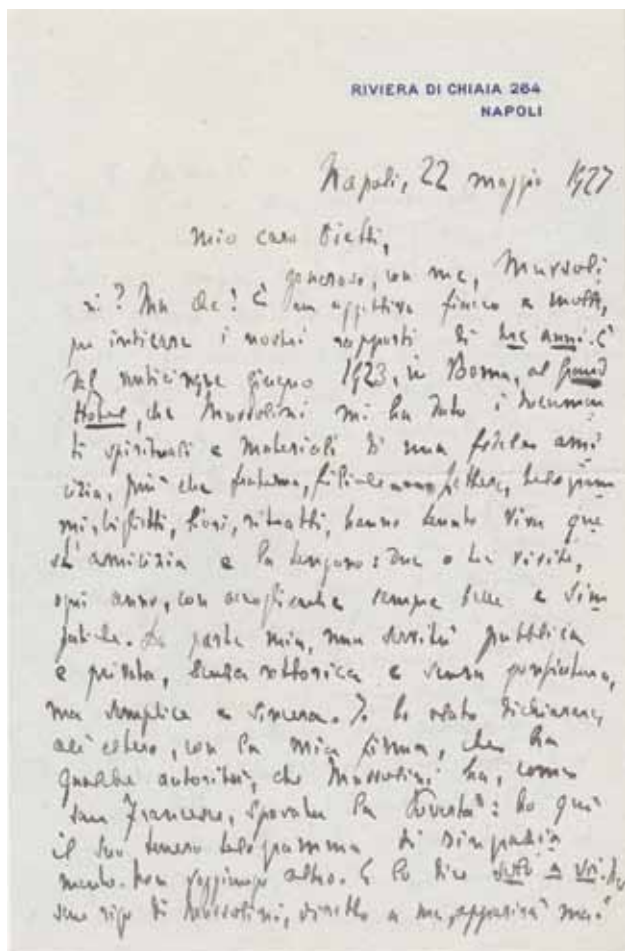 RIVIERA DI CHIAIA 264
NAPOLI
Napoli, 22 maggio 1927
Mio caro
generoso, con me, Mussoli
ni? Ma che! È un aggettivo fiacco e
per i nostri rapporti di tre anni. È
dal venticinque giugno 1923, in Roma, al Grand
Hotel, che Mussolini mi ha dato i documen
ti spirituali e materiali di una fedele ami
cizia, più che fraterna, filiale lettere, telegram
mi, biglietti, fiori, ritratti, hanno tenuto viva que
st'amicizia e la tengono: due o tre visite,
ogni anno, con accoglienze sempre belle e sim
patiche. Da parte mia, una servitù pubblica
e privata, senza rettorica e senza gonfiatura,
ma semplice e sincera. Io ho osato dichiarare,
all'estero, con la mia firma, che ha
qualche autorità, che Mussolini ha, come
San Francesco, sposata la Povertà: ho qui
il suo tenero telegramma di ringrazia
mento. Non aggiungo altro. E lo dico solo a voi.
rigo di Mussolini, diretto a me, apparirà mai